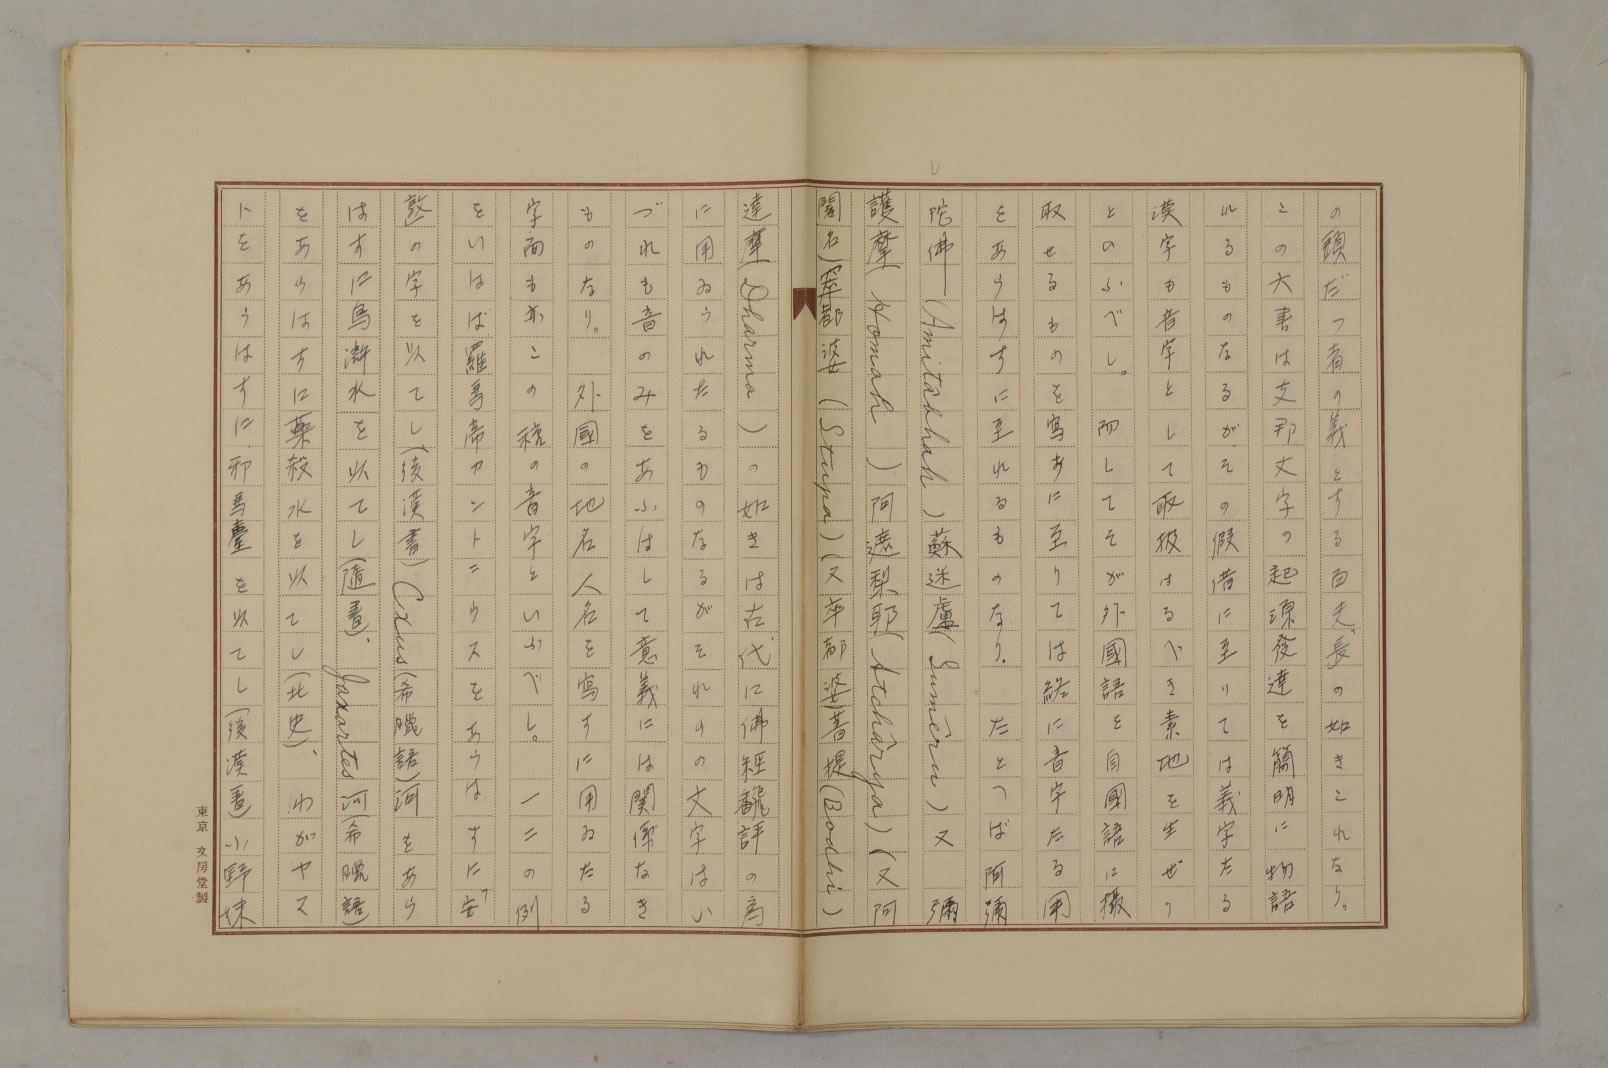 の頭だつ者の義とする百夫長の如きこれなり。
この六書は支那文字の起源發達を簡明に物語
れるものなるがその假借に至りては義字たる
漢字も音字として取扱はるべき素地を生ぜり
とのふべし。而してそが外國語を自國語に攝
取せるものを寫すに至りては終に音字たる用
をあらはすに至れるものなり。たとへば阿彌
陀佛―(Amitabhah)蘇迷盧(Sumêru)又彌
護摩(Homah)阿遮梨耶(Atchârya)(又阿
闍名)窣都婆(Stupa)(又卒都婆)菩提(Bodhi)
達摩(Dharma)の如きは古代に佛經飜譯の為
に用ゐられたるものなるがそれらの文字はい
づれも音のみをあらはして意義には關係なき
ものなり。外國の地名人名を寫すに用ゐたる
字面も亦この種の音字といふべし。一二の例
をいはば羅馬帝カントニウスをあらはすに安
敦の字を以てし(後漢書)Oxus(希臘語)河をあら
はすに烏滸水を以てし(隨書)、Jaxartes河(希臘語)
をあらはすに藥殺水を以てし(北史)、わがヤマ
トをあらはすに邪馬臺を以てし(後漢書)小野妹
東京 文房堂製